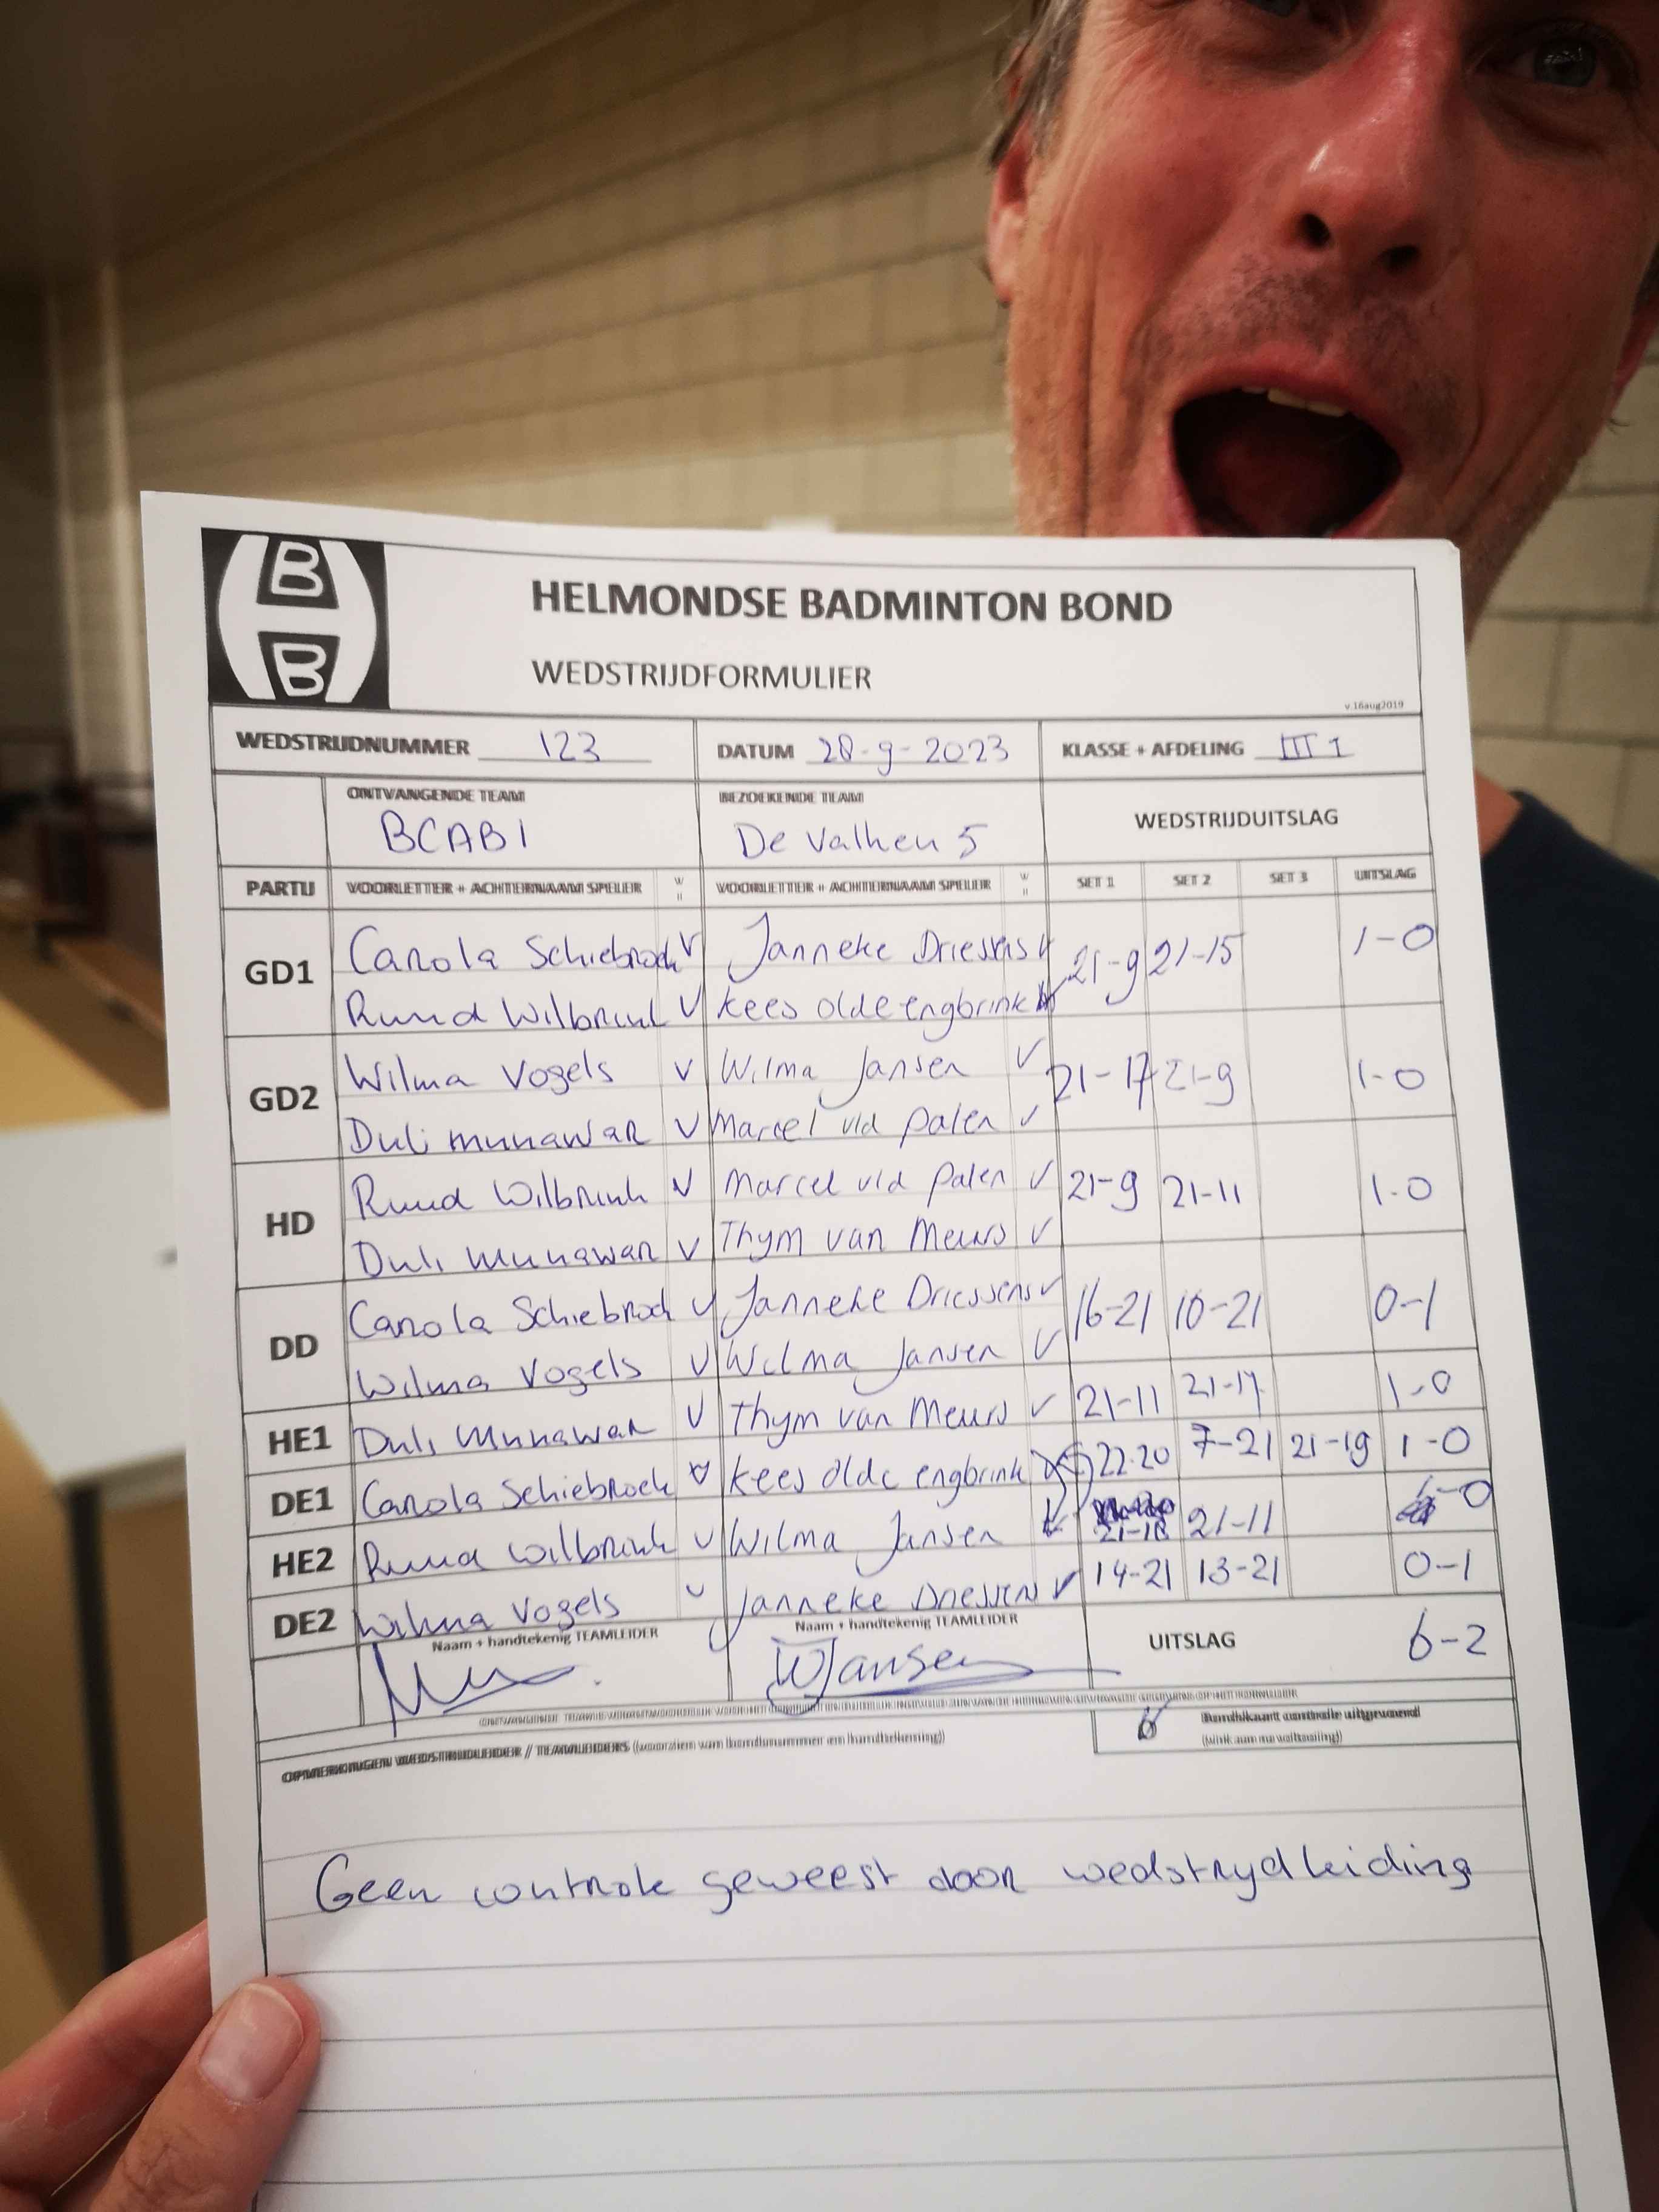 B
B
HELMONDSE BADMINTON BOND
WEDSTRIJDFORMULIER
v.16aug2019
WEDSTRIJDNUMMER 123 DATUM 28-9-2023 KLASSE + AFDELING III 1
ONTVANGENDE TEAM BEZOEKENDE TEAM WEDSTRIJDUITSLAG
BCAB1 De Valken 5
PARTIJ VOORLETTER + ACHTERNAAM SPELER VOORLETTER + ACHTERNAAM SPELER SET 1 SET 2 SET 3 UITSLAG
GD1 Carola Schiebroek V Janneke Driessens V 21-9 21-15 1-0
Ruud Wilbrink V Kees olde engbrink
GD2 Wilma Vogels V Wilma Jansen V 21-17 21-9 1-0
Duli Munawar V Marcel v/d Palen V
HD Ruud Wilbrink V Marcel v/d Palen V 21-9 21-11 1-0
Duli Munawar V Thym van Meurs V
DD Carola Schiebroek V Janneke Driessens V 16-21 10-21 0-1
Wilma Vogels V Wilma Jansen V
HE1 Duli Munawar V Thym van Meurs V 21-11 21-17 1-0
DE1 Carola Schiebroek V Kees olde engbrink 22-20 7-21 21-19 1-0
HE2 Ruud Wilbrink V Wilma Jansen 21-18 21-11 1-0
DE2 Wilma Vogels V Janneke Driessens V 14-21 13-21 0-1
Naam + handtekenig TEAMLEIDER Naam + handtekenig TEAMLEIDER UITSLAG 6-2
WJansen
Bondskaart controle uitgevoerd
OPMERKINGEN WEDSTRIJDLEIDER / TEAMLEIDERS (voorzien van bondsnummer en handtekening)
Geen controle geweest door wedstrydleiding